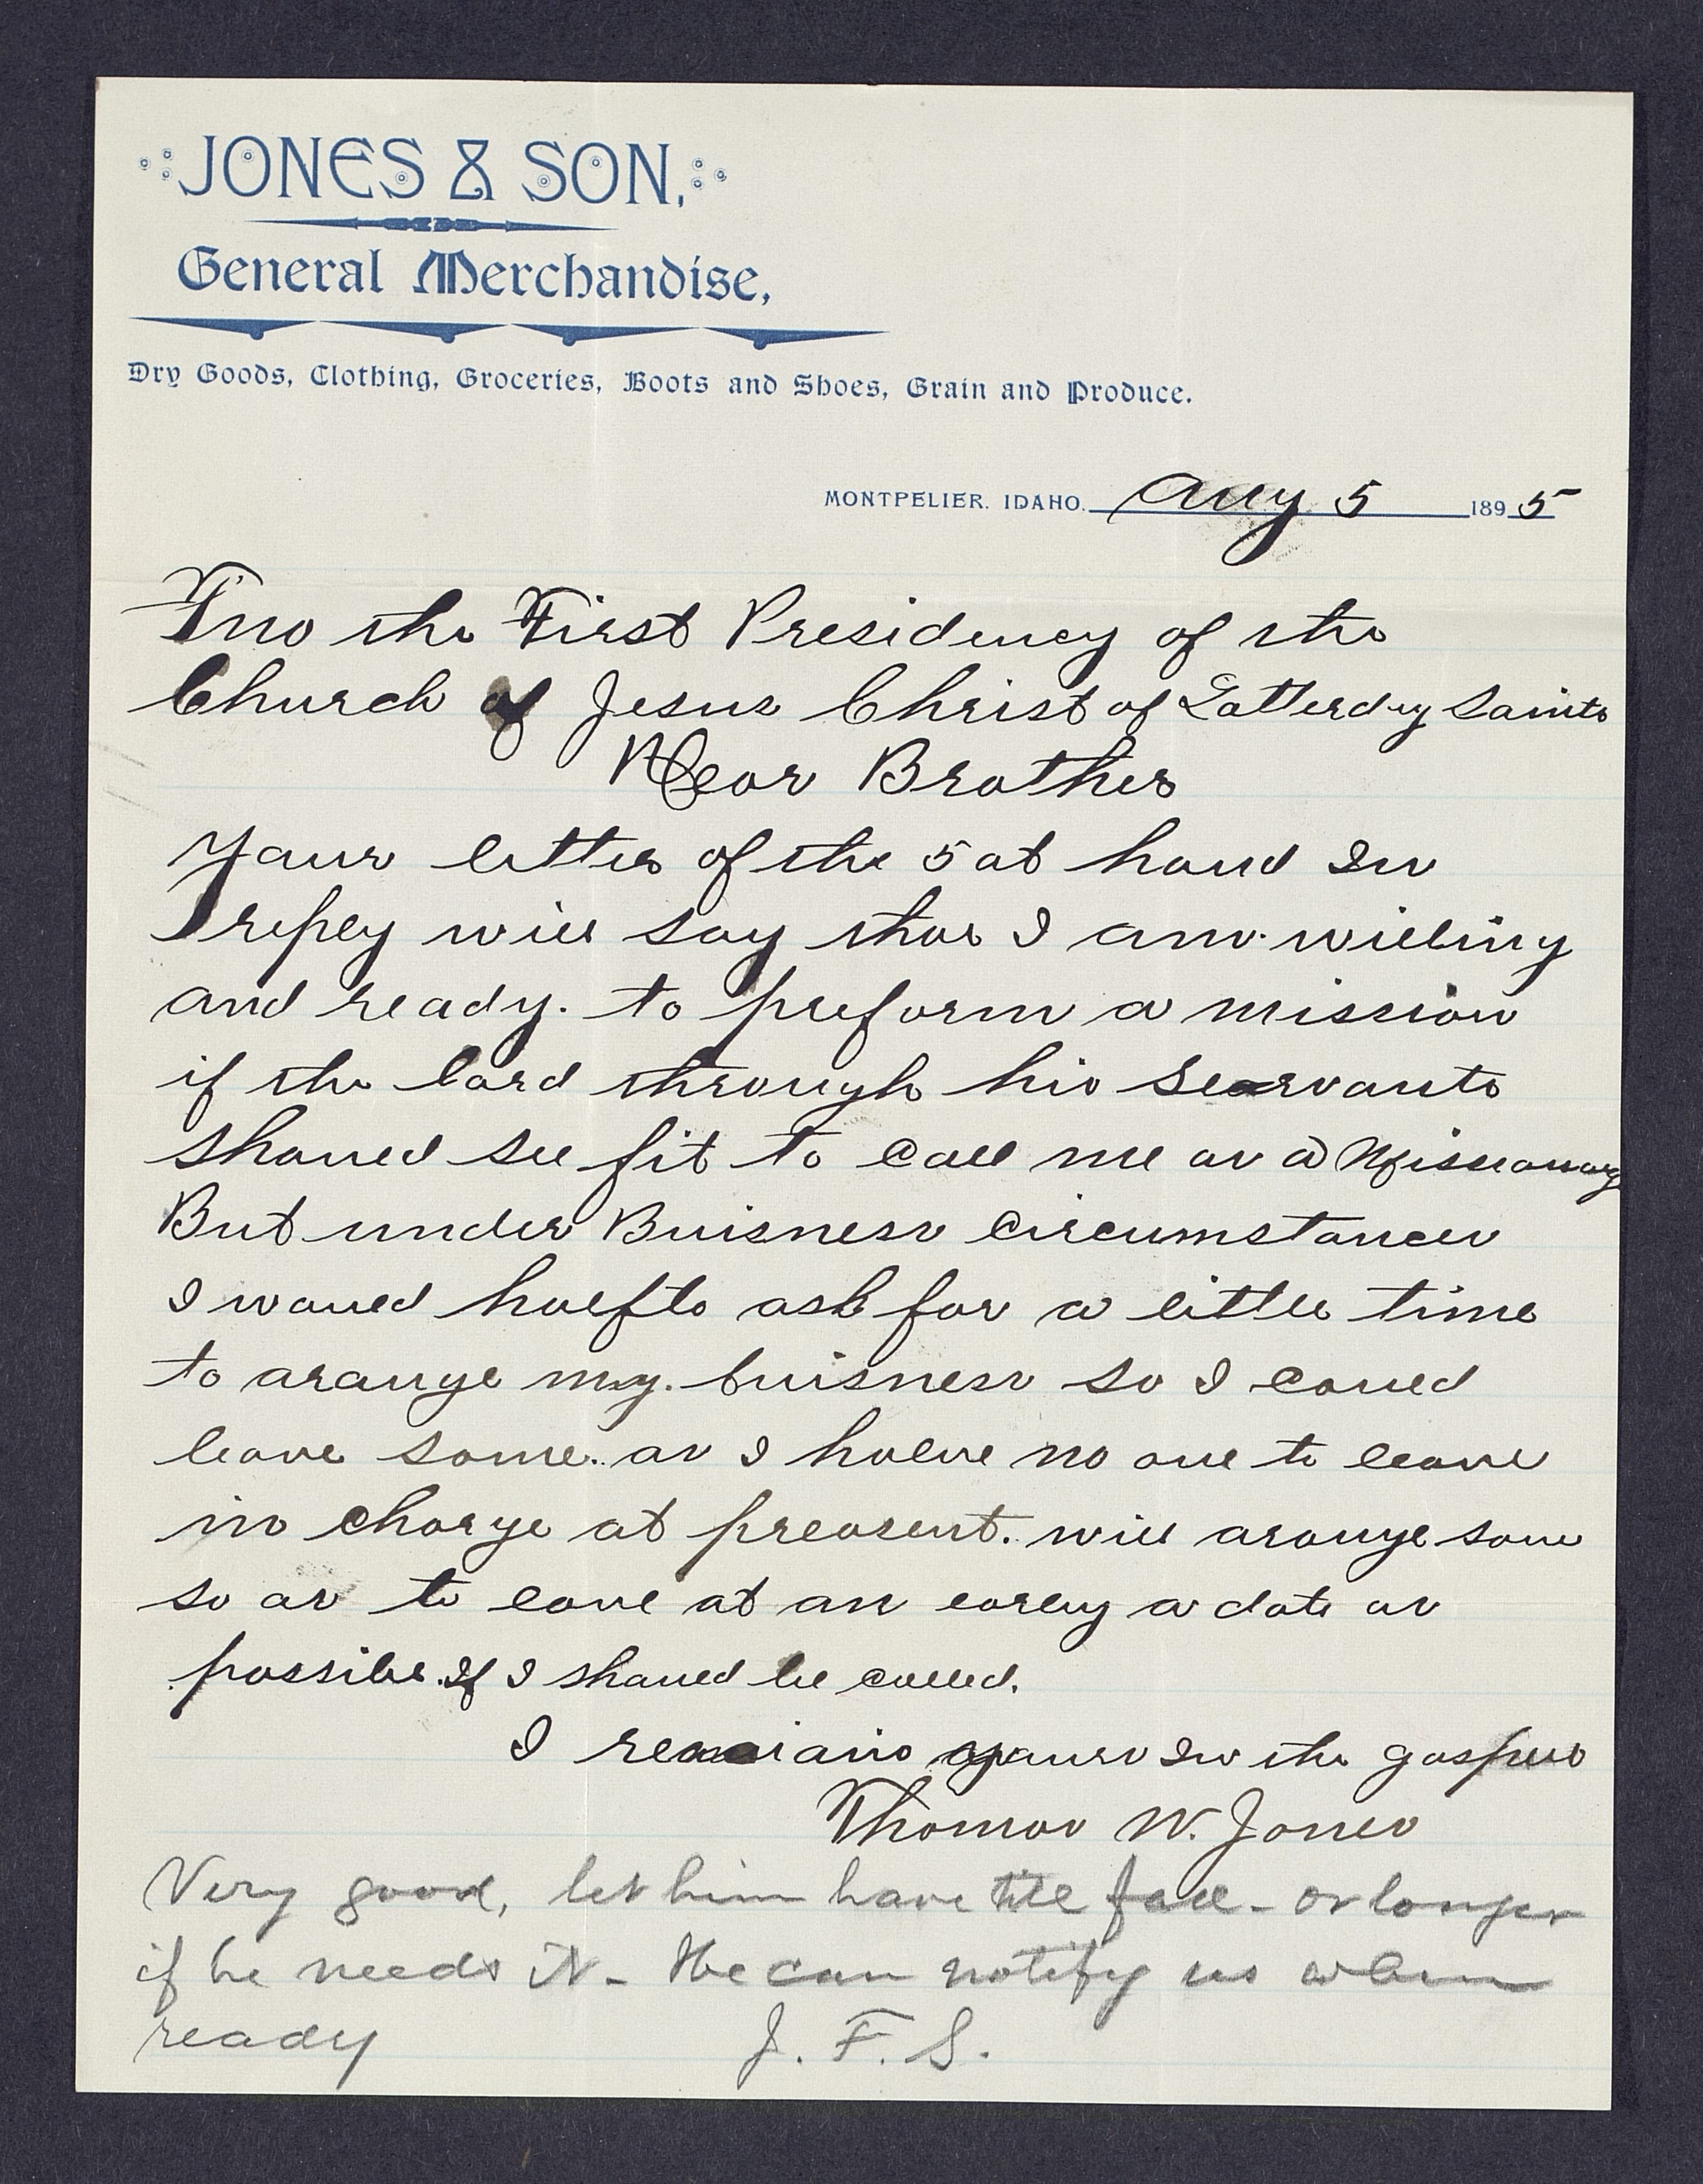 JONES & SON,
General Merchandise,
Dry Goods, Clothing, Groceries, Boots and Shoes, Grain and Produce.
MONTPELIER. IDAHO. Aug 5 1895
Too the First Presidency of the
Church of Jesus Christ of Latterday Saints
Dear Brother
Your letter of the 5 at hand In
repley will say that I am willing
and ready. to preform a mission
if the lord through his searvants
should see fit to call me as a Missionary
But under Buisness Circumstances
I would hafto ask for a little time
to arange my. buisness so I could
leave some. as I have no one to leave
in charge at preasent. will arange some
so as to leave at an earley a date as
possible. If I should be called.
I remaian yours In the gospel
Thomas W. Jones
Very good, let him have till fall - or longer
if he needs it - He can notify us when
ready
J. F. S.